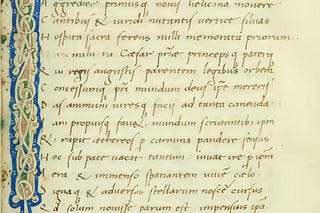 A ggredior primusq novis helicona movere
C antibus & viridi nutantis vertice silvas
H ospita sacra ferens nulli memorata priorum
unc mihi tu Cæsar priæ princepsq paterq
Q ui regis augustis parentem legibus orbem
C oncessumq pri mundum deus ipe mereris
D as animum viresq facis ad tanta canenda
am propiusq favet mundum scrutantibus ipm
E t cupit æthereos p carmina pandere sensus
H oc sub pace vacat tantum iuvat ire p ipm
era & immenso spatiantem vivere cælo
ignaq & adversos stellarum noscere cursus
solum novisse parum est impensius ipsa